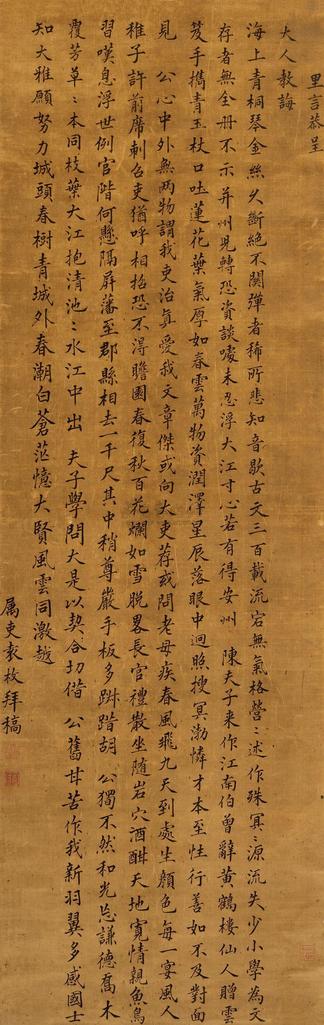 里言恭呈
大人教誨
海上青桐琴金絲久斷絕不關彈者稀所悲知音歇古文三百載流宕無氣格營〻述作殊冥〻源流失少小學為文
存者無全冊不示并州兒轉恐資談噱未忍浮大江寸心若有得安州 陳夫子来作江南伯曾辭黃鶴樓仙人贈雲
笈手攜青玉杖口吐蓮花葉氣厚如春雲萬物資潤澤星辰落眼中迴照搜冥渤憐才本至性行善如不及對面
見 公心中外無兩物謂我吏治真愛我文章傑或向大吏荐或問老母疾春風飛九天到處生顏色每一宴風人
稚子許薦席刺召吏猶呼相招恐不得瞻園春復秋百花爛如雪脫略長官禮散坐隨岩穴酒酣天地寬情親魚鳥
習嘆息浮世例官階何懸隔屏藩至郡縣相去一千尺其中稍尊嚴手板多跼蹐胡 公獨不然和光忘謙德喬木
覆芳草〻本同枝葉大江抱清池〻水江中出 夫子學問大是以契合切偕 公舊甘苦作我新羽翼多感國士
知大雅願努力城頭春樹青城外春潮白蒼茫憶大賢風雲同激越
属吏袁枚拜稿